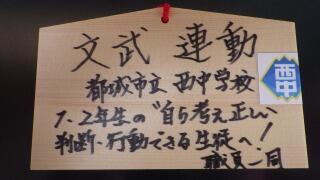 文武連動
都城市立 西中学校
1.2年生の"自ら考え正しい
判断・行動できる生徒へ!
職員一同
西中